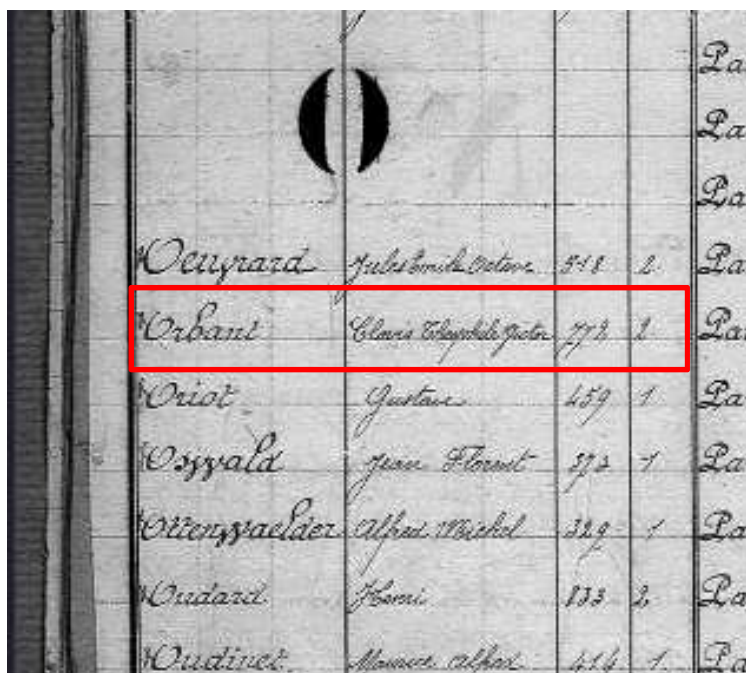 O
Pa
Pa
Pa
Oeuvrard Jules Emile Octave 518 2 Pa
Orbant Clovis Théophile Victor 772 2 Pa
Oriot Gustave 459 1 Pa
Oswald Jean Florent 372 1 Pa
Ottenwaelder Alfred Michel 329 1 Pa
Oudard Henri 833 2 Pa
Oudinet Maurice Alfred 414 1 Pa